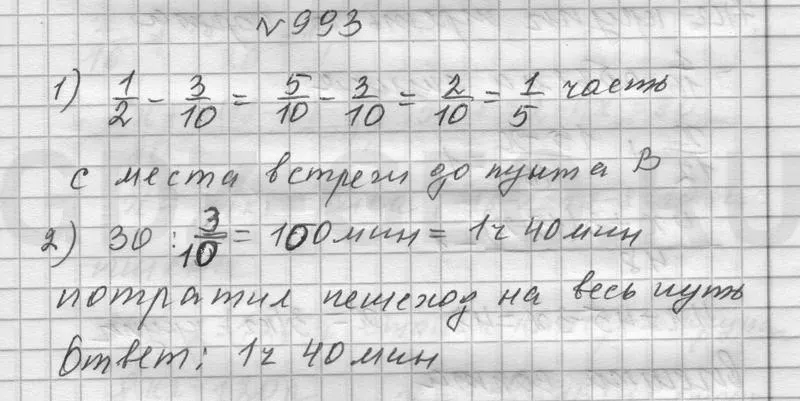 №993
1) 1/2 - 3/10 = 5/10 - 3/10 = 2/10 = 1/5 часть
с места встречи до пункта В
2) 30 : 3/10 = 100мин = 1ч 40мин
потратил пешеход на весь путь
Ответ: 1ч 40мин